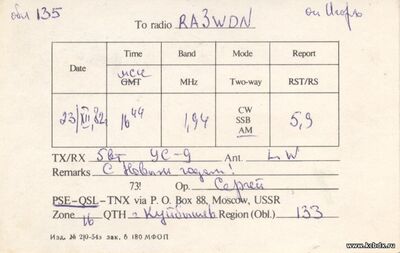 обл 135
оп Игорь
To radio RA3WDN
Date Time Band Mode Report
мск
GMT MHz Two-way RST/RS
23/XII,82 16 44 1,94 CW SSB AM 5,9
TX/RX 5вт УС-9 Ant. LW
Remarks С Новым годом!
73! Op. Сергей
PSE-QSL-TNX via P. O. Box 88, Moscow, USSR
Zone 16 QTH г Куйбышев Region (Obl.) 133
Изд. № 2|0-54з зак. 6 180 МФОП
www.kcbdx.ru